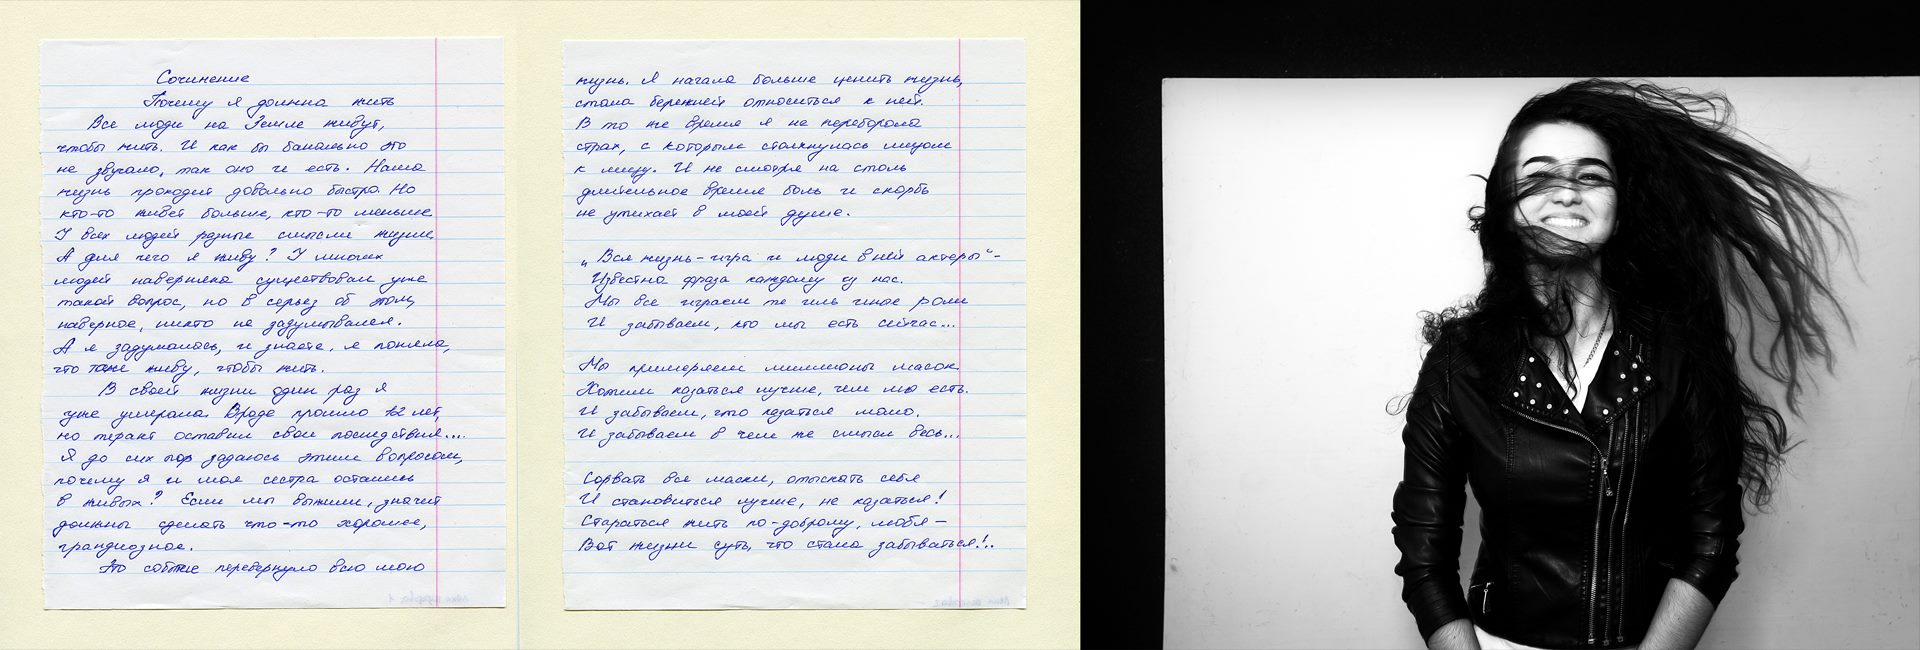 Сочинение
Почему я должна жить
Все люди на Земле живут,
чтобы жить. И как бы банально это
не звучало, так оно и есть. Наша
жизнь проходит довольно быстро. Но
кто-то живет больше, кто-то меньше.
У всех людей разные смыслы жизни.
А для чего я живу? У многих
людей наверняка существовал уже
такой вопрос, но в серьез об этом,
наверное, никто не задумывался.
А я задумалась, и знаете, я поняла,
что тоже живу, чтобы жить.
В своей жизни один раз я
уже умерала. Вроде прошло 12 лет,
но теракт оставил свои последствия...
Я до сих пор задаюсь этим вопросом,
почему я и моя сестра остались
в живых? Если мы выжили, значит
должны сделать что-то хорошее,
грандиозное.
Это событие перевернуло всю мою
жизнь. Я начала больше ценить жизнь,
стала бережней относиться к ней.
В то же время я не переборола
страх, с которым столкнулась лицом
к лицу. И не смотря на столь
длительное время боль и скорбь
не утихает в моей душе.
„Вся жизнь-игра и люди в ней актеры“-
Известна фраза каждому из нас.
Мы все играем те иль иные роли
И забываем, кто мы есть сейчас...
Мы примеряем миллионы масок.
Хотим казаться лучше, чем мы есть.
И забываем, что казаться мало.
И забываем в чем же смысл весь...
Сорвать все маски, отыскать себя
И становиться лучше, не казаться!
Стараться жить по-доброму, любя-
Вот жизни суть, что стала забываться!..